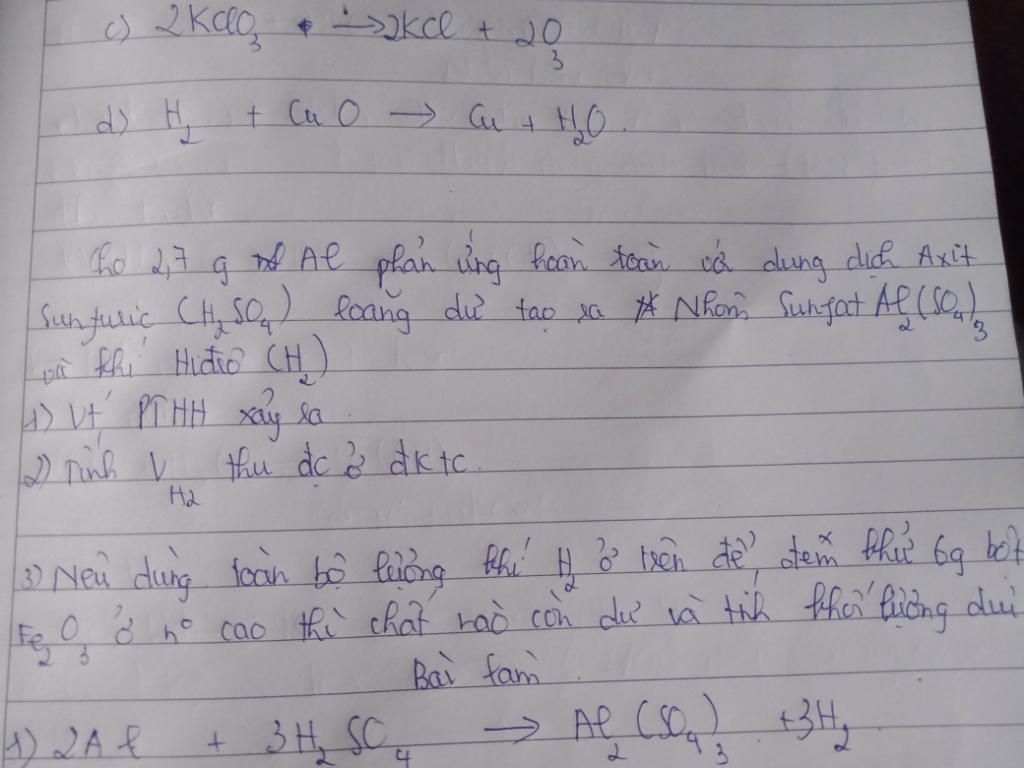 c) 2KClO3 → 2KCl + 2O3
d) H2 + CuO → Cu + H2O.
Cho 2,7 g Al phản ứng hoàn toàn với dung dịch Axit
Sunfuric (H2SO4) loãng dư tạo ra Nhôm Sunfat Al2(SO4)3
và khí Hiđrô (H2)
1) Vt PTHH xảy ra.
2) Tính VH2 thu đc ở đktc.
3) Nếu dùng toàn bộ lượng khí H2 ở trên để đem khử 6g bột
Fe2O3 ở nº cao thì chất nào còn dư và tính khối lượng dư
Bài làm
1) 2Al + 3H2SO4 → Al2(SO4)3 + 3H2